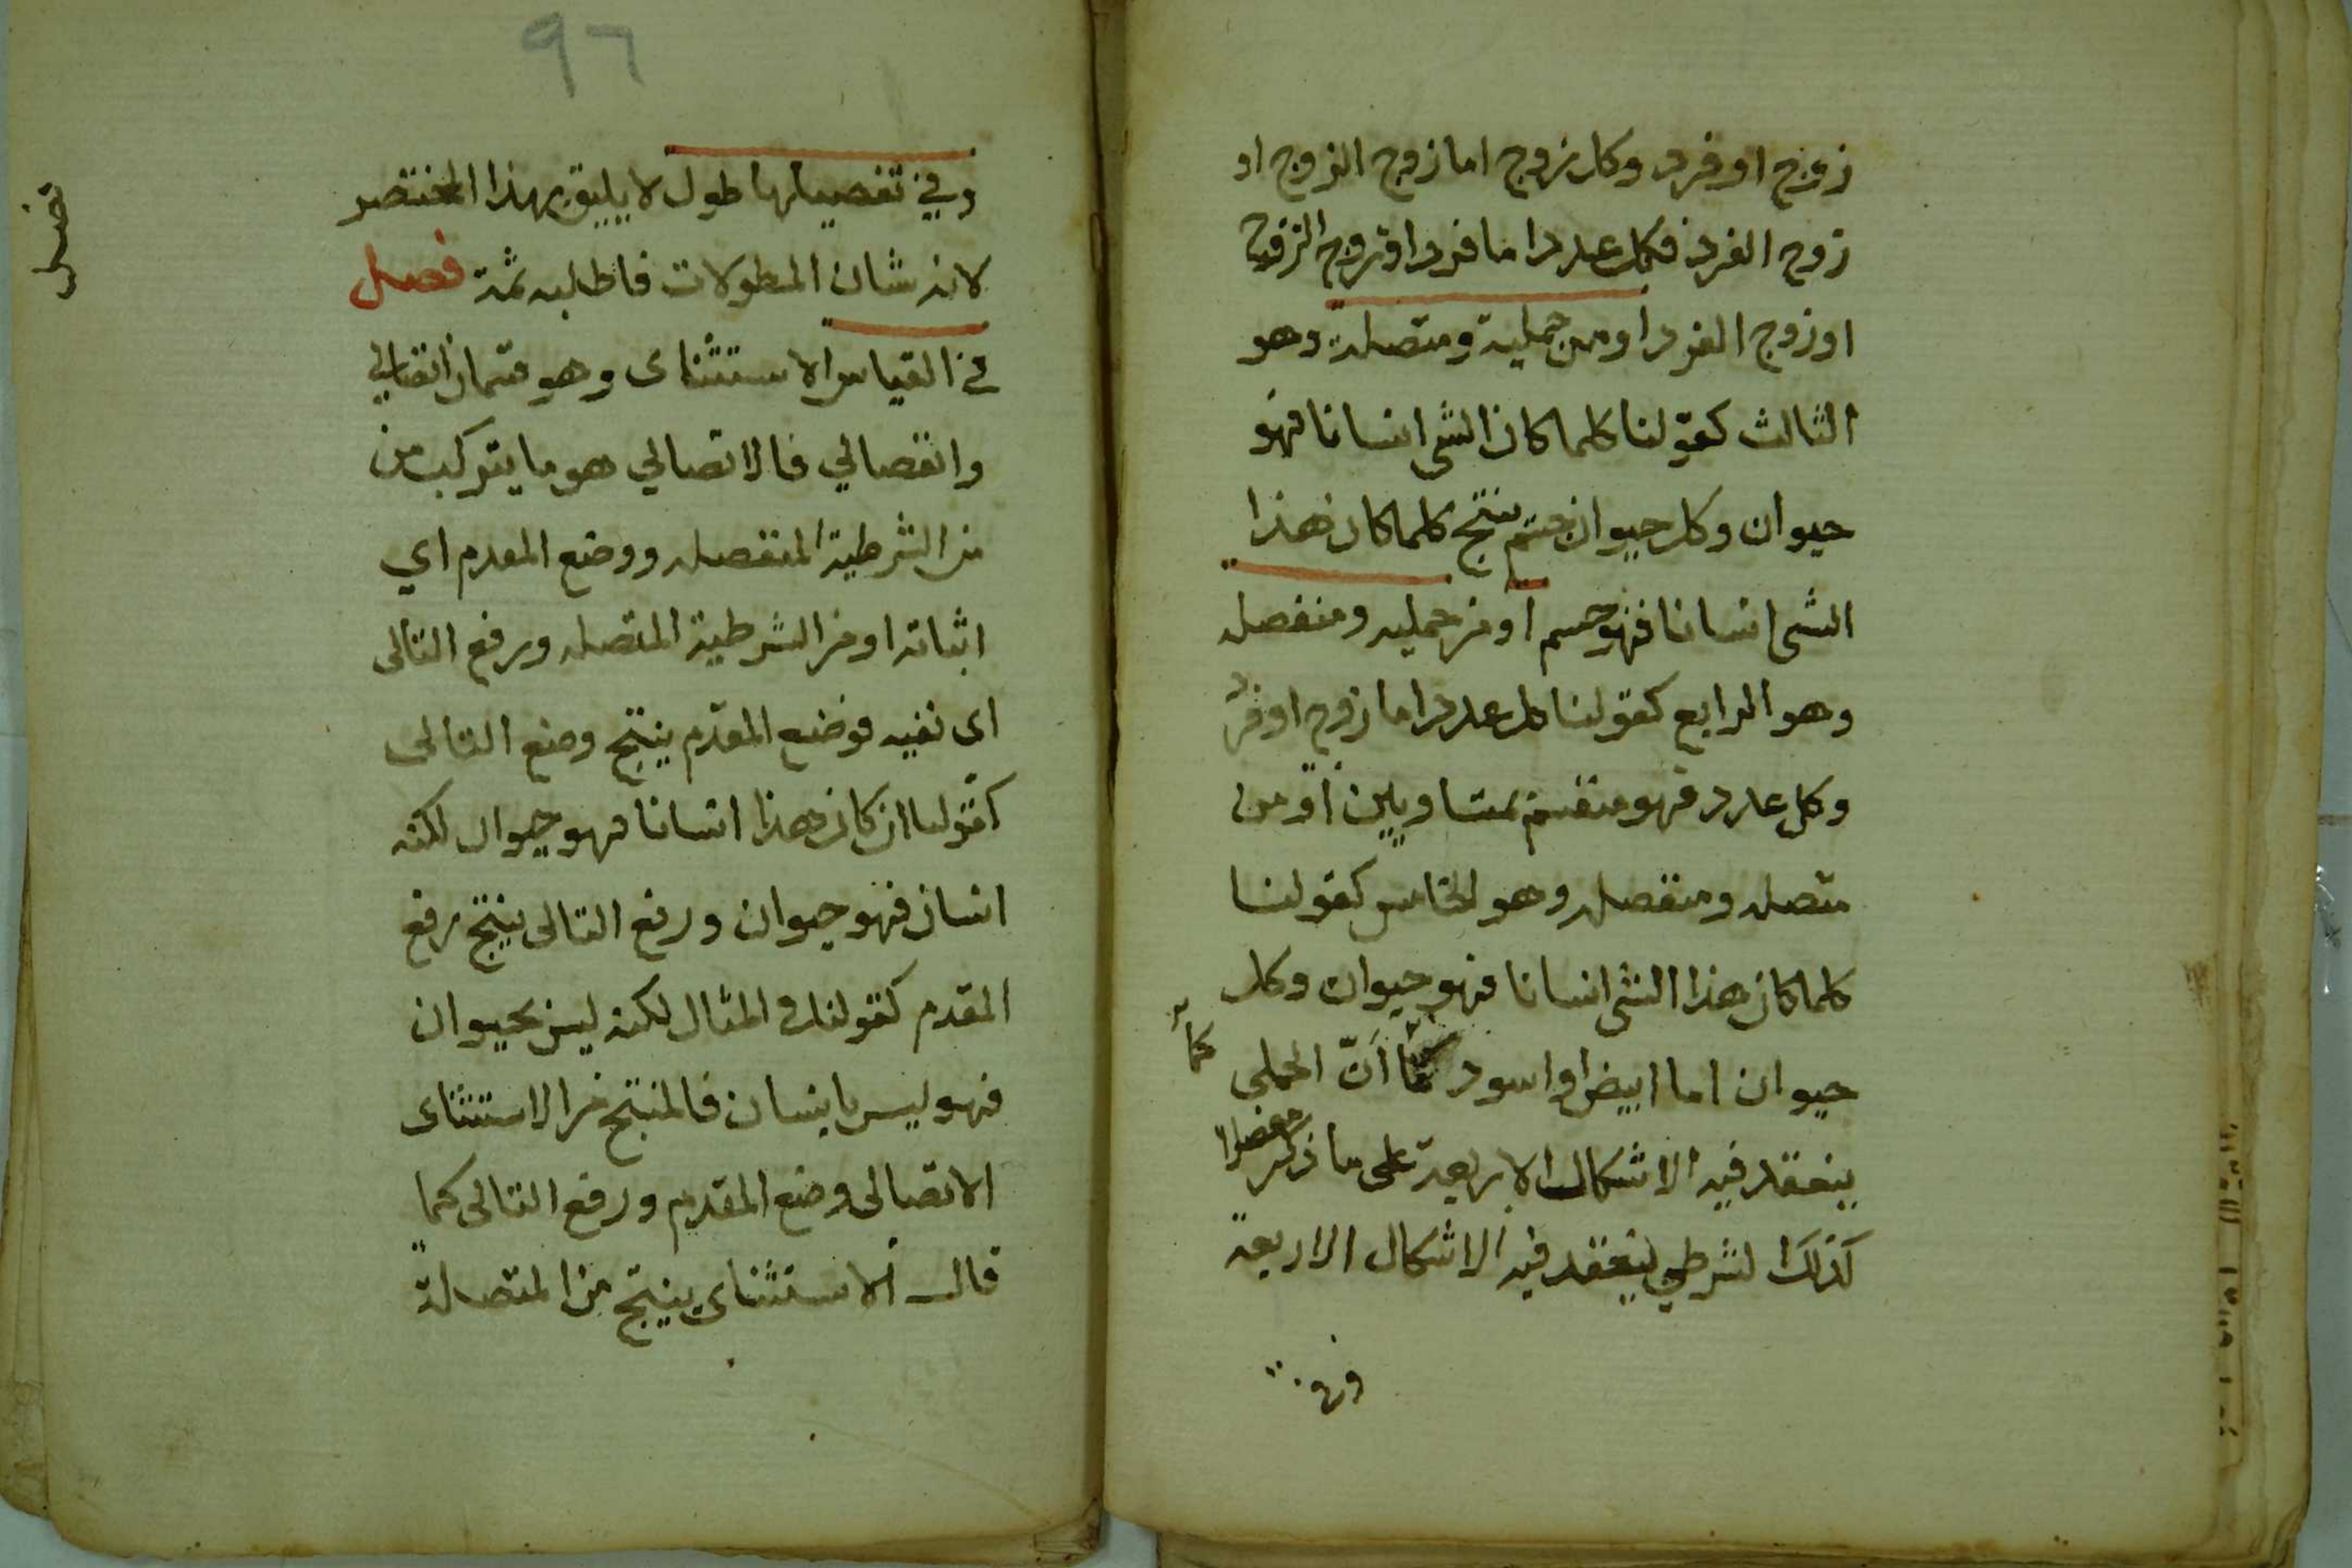 زوج او فرد وكل زوج اما زوج الزوج او
زوج الفرد فكل عدد اما فرد او زوج الزوج
او زوج الفرد او من حملية ومتصلة وهو
الثالث كقولنا كلما كان الشى انسانا فهو
حيوان وكل حيوان جسم ينتج كلما كان هذا
الشى انسانا فهو جسم او من حمليه ومنفصله
وهو الرابع كقولنا كل عدد اما زوج او فرد
وكل عدد فهو منقسم بمتساويين او من
متصله ومنفصله وهو الخامس كقولنا
كلما كان هذا الشى انسانا فهو حيوان وكل
حيوان اما ابيض او اسود كما أنّ الحملي
كما
ينعقد فيه الاشكال الاربعة على ما ذكر مفصلا
كذلك الشرطي ينعقد فيه الاشكال الاربعة
وفي
٩٦
وفي تفصيلها طول لا يليق بهذا المختصر
لانه شان المطولات فاطلبه ثمة فصل
في القياس الاستثناى وهو قسمان اتصالي
وانفصالي فالاتصالي هو ما يتركب من
من الشرطية المنفصله ووضع المقدم اي
اثباته او من الشرطية المتصله ورفع التالى
اى نفيه فوضع المقدم ينتج وضع التالى
كقولنا ان كان هذا انسانا فهو حيوان لكنه
انسان فهو حيوان ورفع التالى ينتج رفع
المقدم كقولنا في المثال لكنه ليس بحيوان
فهو ليس بانسان فالمنتج من الاستثناى
الاتصالى وضع المقدم ورفع التالى كما
قال الاستثناى ينتج من المتصلة